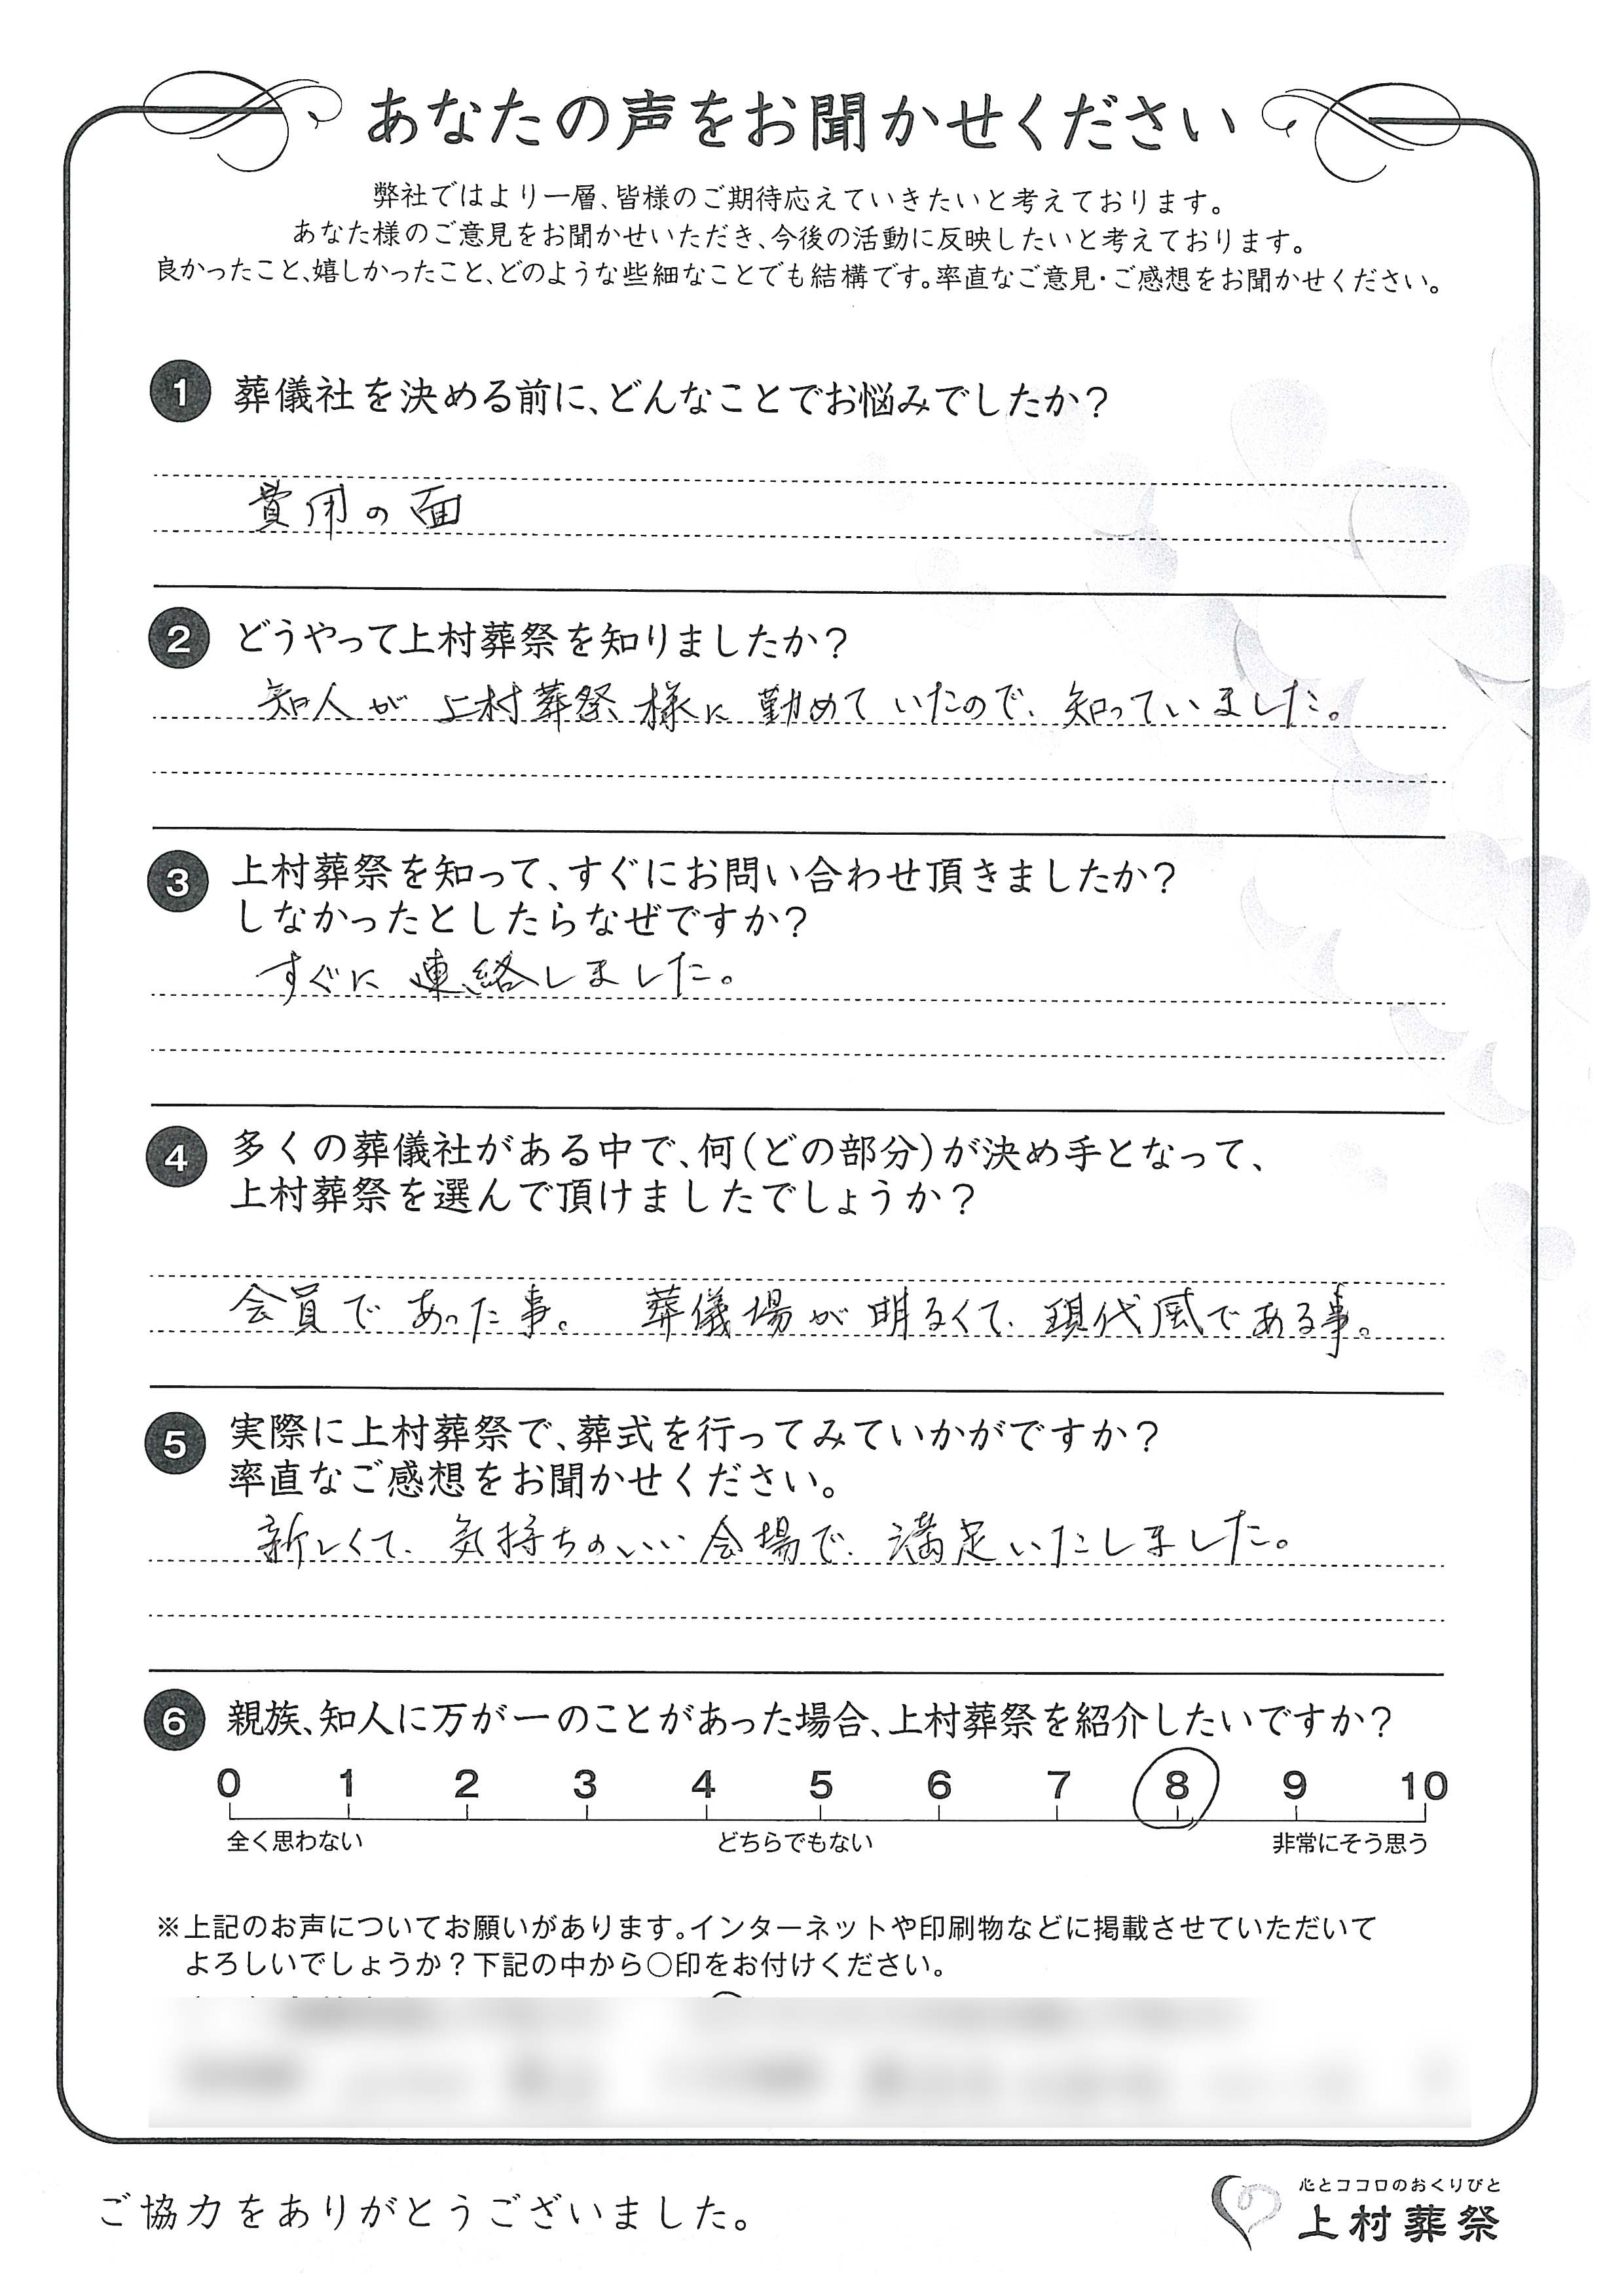 あなたの声をお聞かせください
弊社ではより一層、皆様のご期待応えていきたいと考えております。
あなた様のご意見をお聞かせいただき、今後の活動に反映したいと考えております。
良かったこと、嬉しかったこと、どのような些細なことでも結構です。率直なご意見・ご感想をお聞かせください。
1 葬儀社を決める前に、どんなことでお悩みでしたか?
費用の面
2 どうやって上村葬祭を知りましたか?
知人が上村葬祭様に勤めていたので、知っていました。
3 上村葬祭を知って、すぐにお問い合わせ頂きましたか?
しなかったとしたらなぜですか?
すぐに連絡しました。
4 多くの葬儀社がある中で、何(どの部分)が決め手となって、
上村葬祭を選んで頂けましたでしょうか?
会員であった事。 葬儀場が明るくて、現代風である事。
5 実際に上村葬祭で、葬式を行ってみていかがですか?
率直なご感想をお聞かせください。
新しくて、気持ちのいい会場で、満足いたしました。
6 親族、知人に万が一のことがあった場合、上村葬祭を紹介したいですか?
0 1 2 3 4 5 6 7 8 9 10
全く思わない どちらでもない 非常にそう思う
※上記のお声についてお願いがあります。インターネットや印刷物などに掲載させていただいて
よろしいでしょうか?下記の中から○印をお付けください。
ご協力をありがとうございました。
心とココロのおくりびと
上村葬祭